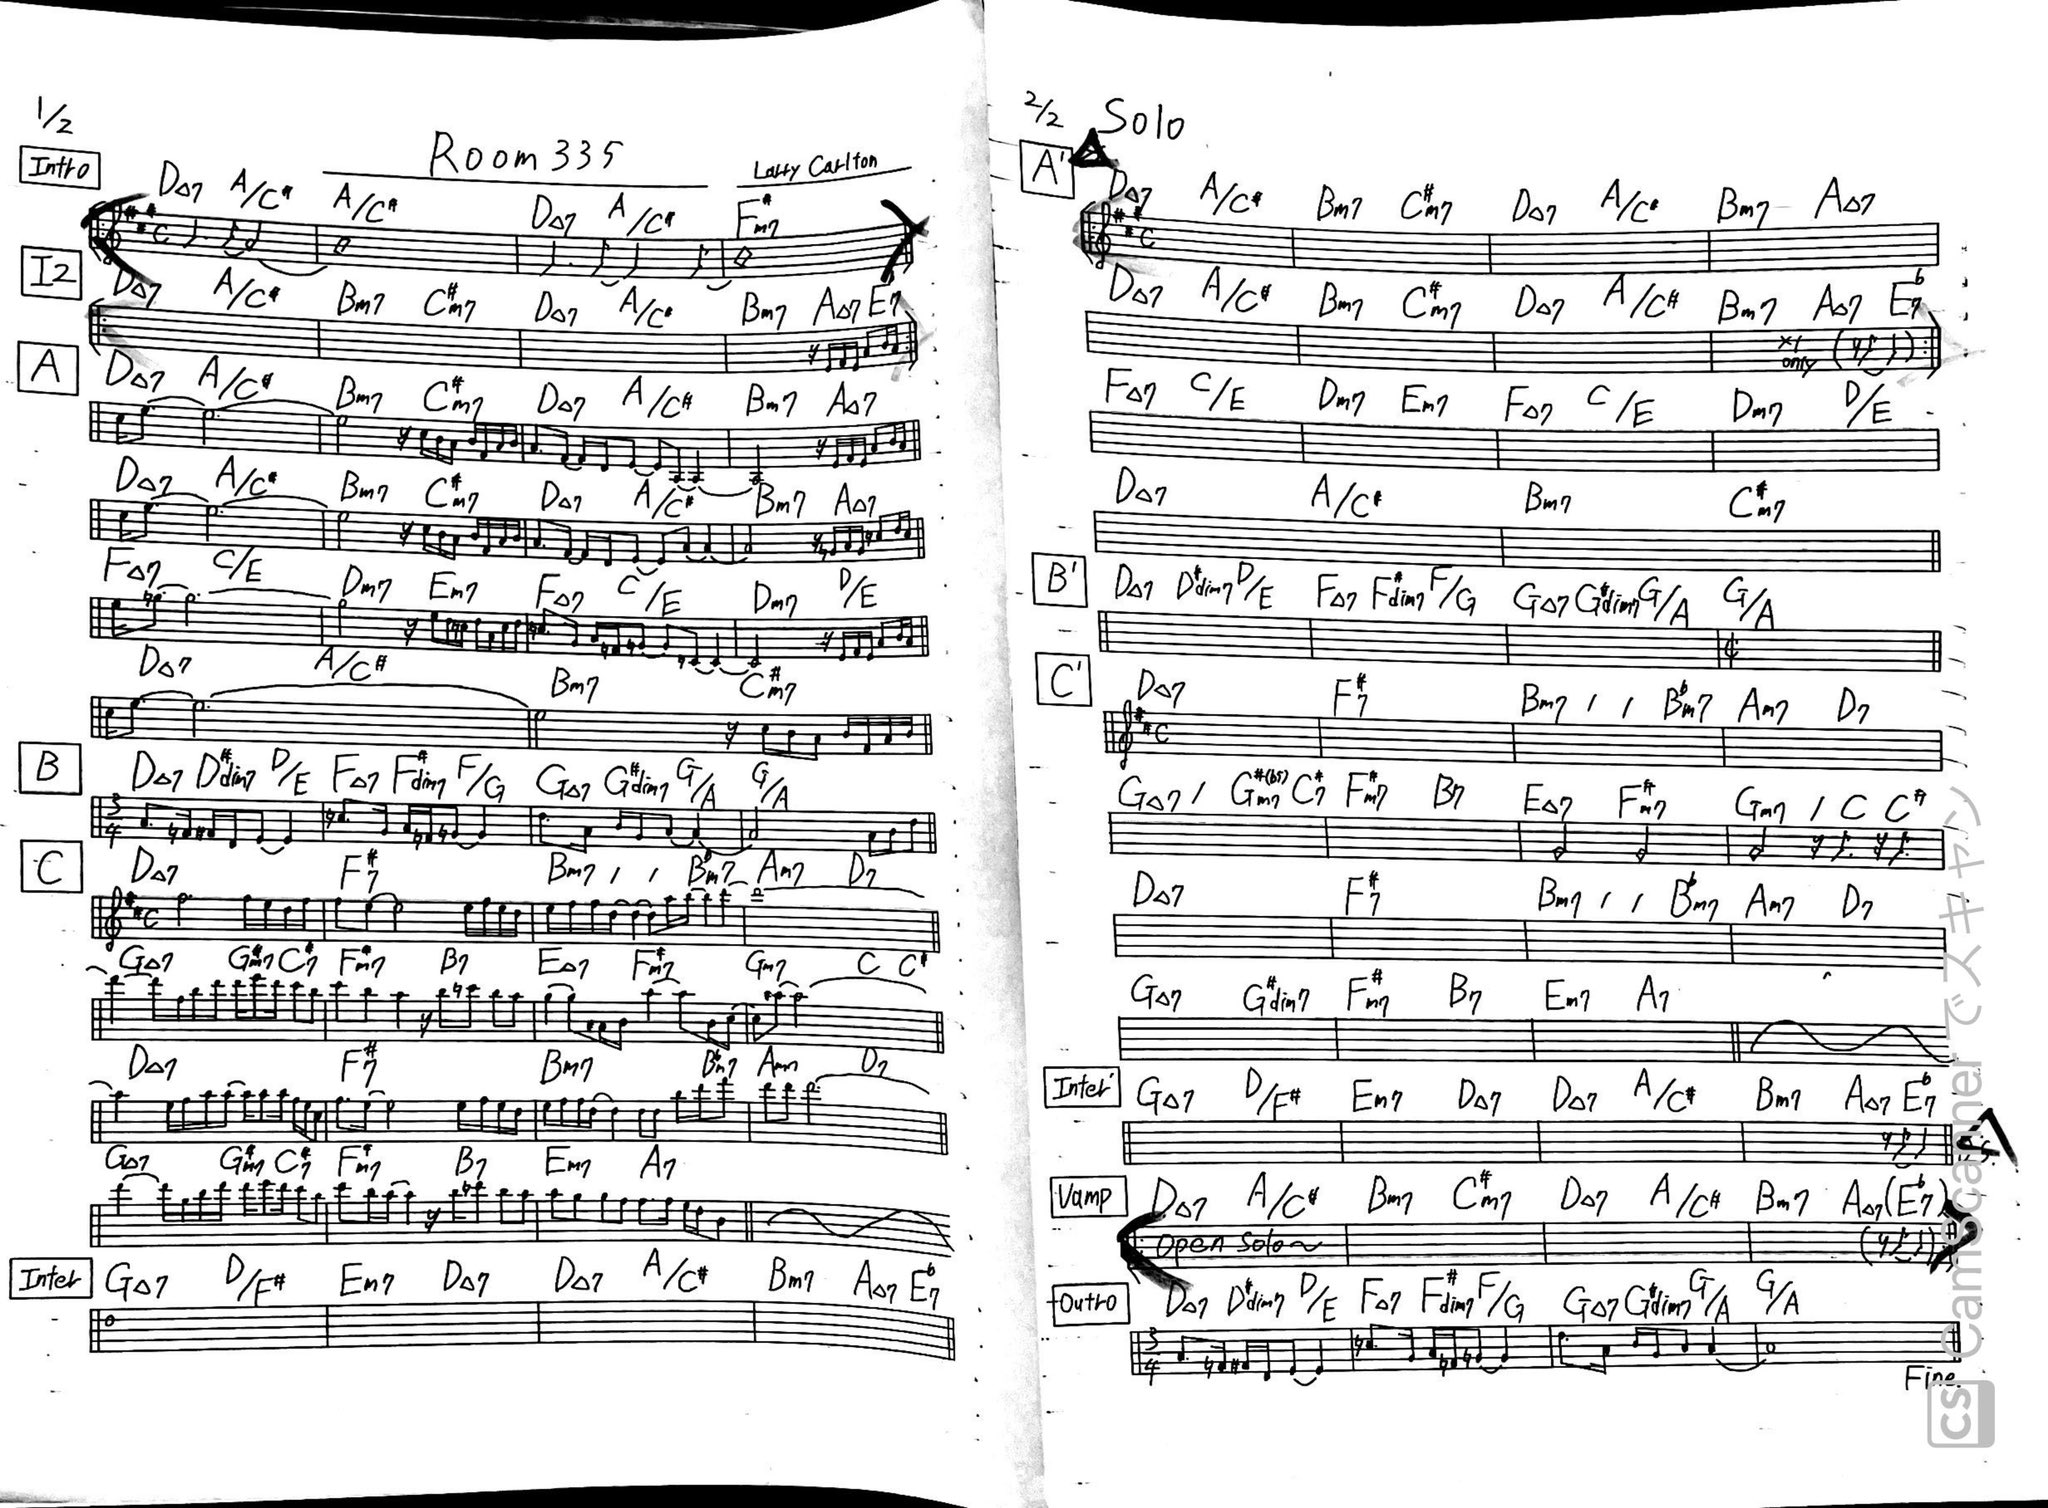 1/2
Room 335
Larry Carlton
Intro
D△7 A/C# A/C# D△7 A/C# F#m7
I2
D△7 A/C# Bm7 C#m7 D△7 A/C# Bm7 A△7 E♭7
A
D△7 A/C# Bm7 C#m7 D△7 A/C# Bm7 A△7
D△7 A/C# Bm7 C#m7 D△7 A/C# Bm7 A△7
F△7 C/E Dm7 Em7 F△7 C/E Dm7 D/E
D△7 A/C# Bm7 C#m7
B
D△7 D#dim7 D/E F△7 F#dim7 F/G G△7 G#dim7 G/A G/A
3/4
C
D△7 F#7 Bm7 / / B♭m7 Am7 D7
G△7 G#m7 C#7 F#m7 B7 E△7 F#m7 Gm7 C C#
D△7 F#7 Bm7 B♭m7 Am7 D7
G△7 G#m7 C#7 F#m7 B7 Em7 A7
Inter
G△7 D/F# Em7 D△7 D△7 A/C# Bm7 A△7 E♭7
2/2
Solo
A'
D△7 A/C# Bm7 C#m7 D△7 A/C# Bm7 A△7
D△7 A/C# Bm7 C#m7 D△7 A/C# Bm7 A△7 E♭7
x1 only
F△7 C/E Dm7 Em7 F△7 C/E Dm7 D/E
D△7 A/C# Bm7 C#m7
B'
D△7 D#dim7 D/E F△7 F#dim7 F/G G△7 G#dim7 G/A G/A
C'
D△7 F#7 Bm7 / / B♭m7 Am7 D7
G△7 / G#m7(b5) C#7 F#m7 B7 E△7 F#m7 Gm7 / C C#
D△7 F#7 Bm7 / / B♭m7 Am7 D7
G△7 G#dim7 F#m7 B7 Em7 A7
Inter'
G△7 D/F# Em7 D△7 D△7 A/C# Bm7 A△7 E♭7
Vamp
D△7 A/C# Bm7 C#m7 D△7 A/C# Bm7 A△7 (E♭7)
open solo~
Outro
D△7 D#dim7 D/E F△7 F#dim7 F/G G△7 G#dim7 G/A G/A
3/4
Fine.
CS CamScanner でスキャン